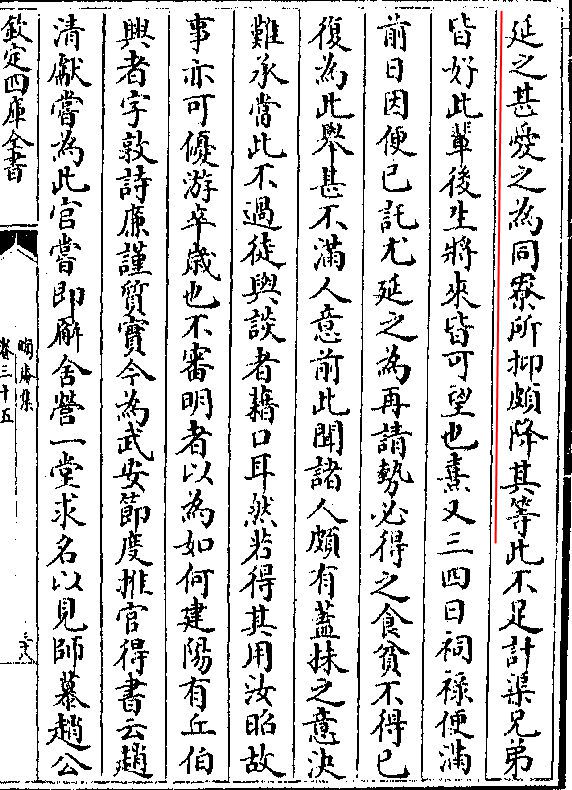 延之甚愛之為同寮所抑頗降其等此不足計渠兄弟
皆好此輩後生將來皆可望也熹又三四日祠禄便滿
前日因便已託尤延之為再請勢必得之食貧不得已
復為此舉甚不滿人意前此聞諸人頗有蓋抹之意決
難承當此不過徒與談者藉口耳然若得其用汝昭故
事亦可優游卒歲也不審明者以為如何建陽有丘伯
興者字敦詩廉謹質實今為武安節度推官得書云趙
清獻嘗為此官嘗即廨舍營一堂求名以見師慕趙公
欽定四庫全書
晦庵集
卷三十五
三六